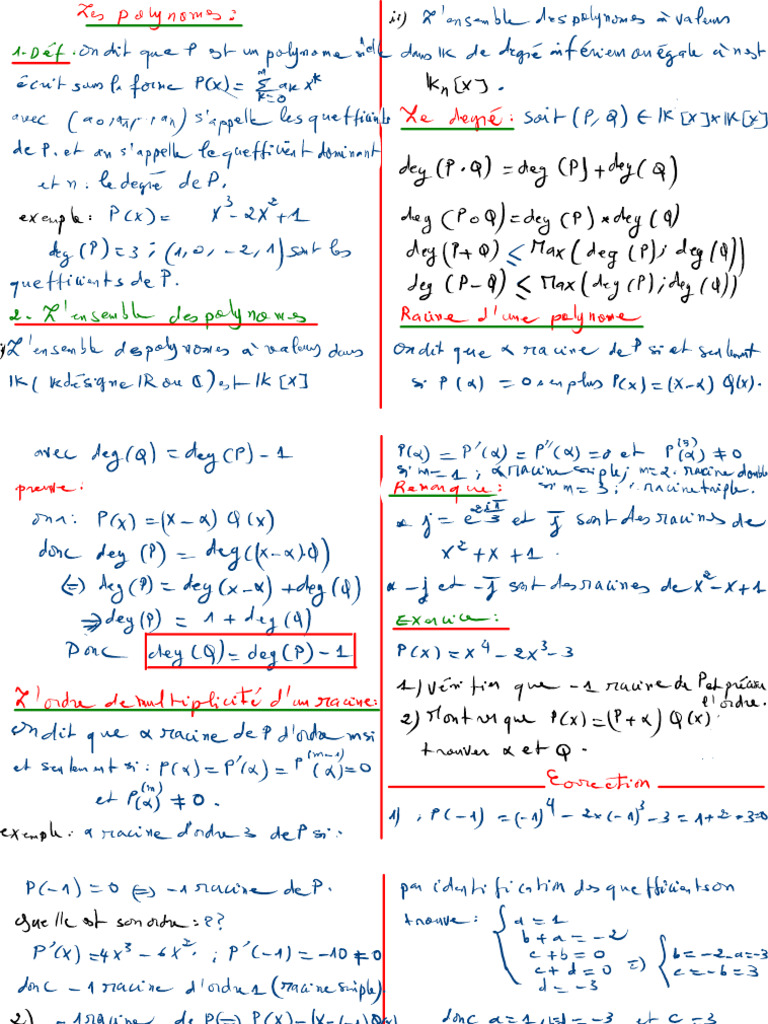 Les polynomes:
1-Déf: on dit que P est un polynome s'elle
écrit sur la forme P(x) = Σ_{k=0}^{n} a_k x^k
avec (a0, a1, ..., an) s'appelle les quefficients
de P. et an s'appelle le quefficient dominant
et n: le degré de P.
exemple: P(x) = x^3 - 2x^2 + 1
deg(P) = 3; (1, 0, -2, 1) sont les
quefficients de P.
2- L'ensemble des polynomes
i) L'ensemble des polynomes à valeurs dans
IK (IK désigne IR ou ℂ) est IK[x]
ii) L'ensemble des polynomes à valeurs
dans IK de degré inférieur ou égale à n est
IK_n[x].
Le degré: soit (P, Q) ∈ IK[x]×IK[x]
deg(P·Q) = deg(P) + deg(Q)
deg(P∘Q) = deg(P) × deg(Q)
deg(P+Q) ≤ Max(deg(P); deg(Q))
deg(P-Q) ≤ Max(deg(P); deg(Q))
Racine d'une polynome
on dit que α racine de P si et seulement
si P(α) = 0 en plus P(x) = (x-α) Q(x).
avec deg(Q) = deg(P) - 1
preuve:
on a: P(x) = (x-α) Q(x)
donc deg(P) = deg((x-α)·Q)
⇔ deg(P) = deg(x-α) + deg(Q)
⇒ deg(P) = 1 + deg(Q)
Donc deg(Q) = deg(P) - 1
L'ordre de multiplicité d'un racine:
on dit que α racine de P d'ordre m si
et seulement si: P(α) = P'(α) = P^(m-1)(α) = 0
et P^(m)(α) ≠ 0.
exemple: α racine d'ordre 3 de P si:
P(α) = P'(α) = P''(α) = 0 et P^(3)(α) ≠ 0
si m=1; α racine simple; m=2. racine double
si m=3; racine triple.
Remarque:
* j = e^{2iπ/3} et j̅ sont des racines de
x^2 + x + 1.
* -j et -j̅ sont des racines de x^2 - x + 1
Exercice:
P(x) = x^4 - 2x^3 - 3
1) Vérifier que -1 racine de P et préciser
l'ordre.
2) Montrer que P(x) = (P+α) Q(x)
trouver α et Q.
Correction
1); P(-1) = (-1)^4 - 2×(-1)^3 - 3 = 1+2-3=0
P(-1) = 0 ⇔ -1 racine de P.
quelle est son ordre: ??
P'(x) = 4x^3 - 6x^2; P'(-1) = -10 ≠ 0
donc -1 racine d'ordre 1 (racine simple)
2) -1 racine de P ⇔ P(x) = (x-(-1)) Q
par identification des quefficients on
trouve: { a = 1
b + a = -2
c + b = 0
c + d = 0
d = -3
⇒ { b = -2-a = -3
c = -b = 3
donc a = 1, b = -3 et c = 3